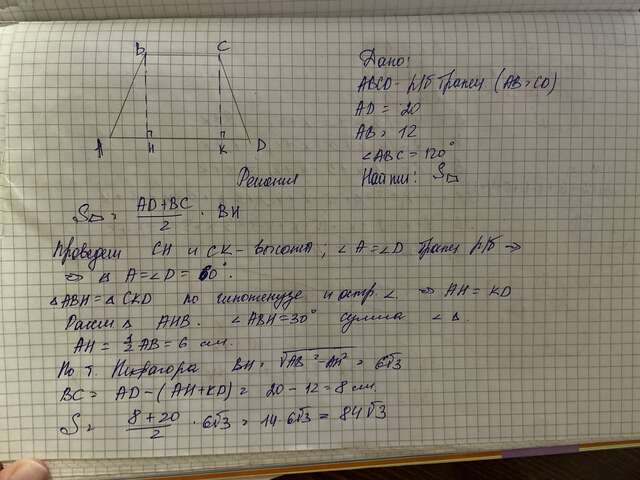 B C
A H K D
Дано:
ABCD - р/б трапец (AB = CD)
AD = 20
AB = 12
∠ABC = 120°
Найти: S
Решение
S = (AD+BC)/2 · BH
Проведем CH и CK - высоты; ∠A = ∠D трапец р/б ⇒
⇒ ∠A = ∠D = 60°.
△ABH = △CKD по гипотенузе и остр. ∠ ⇒ AH = KD
Рассм △ AHB. ∠ABH = 30° сумма ∠ △.
AH = 1/2 AB = 6 см.
По т. Пифагора BH = √(AB² - AH²) = 6√3
BC = AD - (AH + KD) = 20 - 12 = 8 см.
S = (8 + 20)/2 · 6√3 = 14 · 6√3 = 84√3